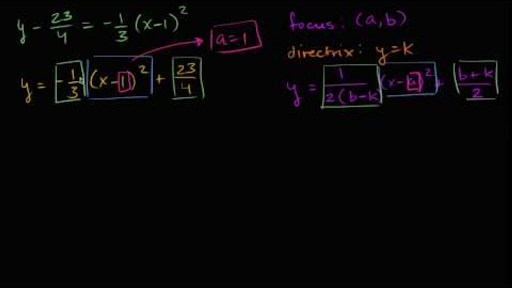 y - 23/4 = -1/3 (x-1)²
a=1
y = -1/3 (x-1)² + 23/4
focus: (a,b)
directrix: y=k
y = 1/2(b-k) (x-a)² + b+k/2